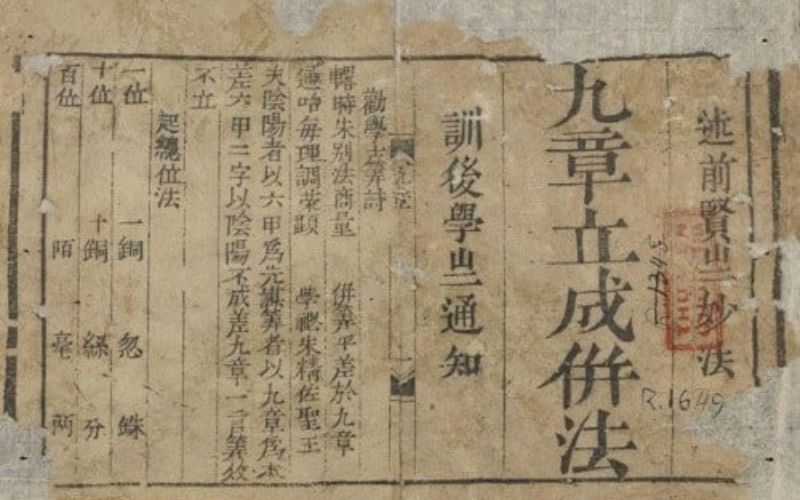 述前賢㞢妙法
九章立成併法
訓後學㞢通知
R.1649
勸學 筭詩
時朱別法商量 併筭平差於九章
每理調 題 學祕朱精佐聖王
夫陰陽者以六甲爲先 筭者以九章爲本
差六甲二字以陰陽不成差九章一二 筭
不立
起總位法
一位 一銅 忽 銖
十位 十銅 絲 分
百位 陌 毫 两